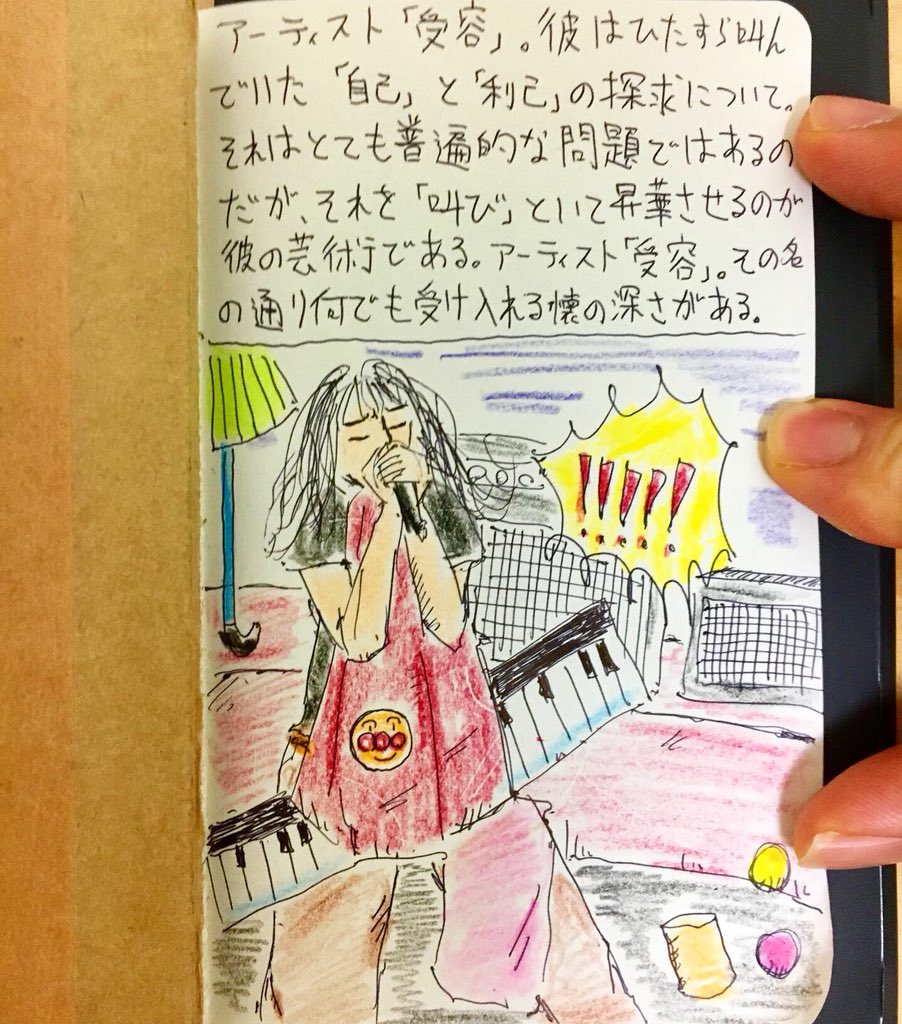 アーティスト「受容」。彼はひたすら叫ん
でいた「自己」と「利己」の探求について。
それはとても普遍的な問題ではあるの
だが、それを「叫び」といて昇華させるのが
彼の芸術である。アーティスト「受容」。その名
の通り何でも受け入れる懐の深さがある。
!!!!!